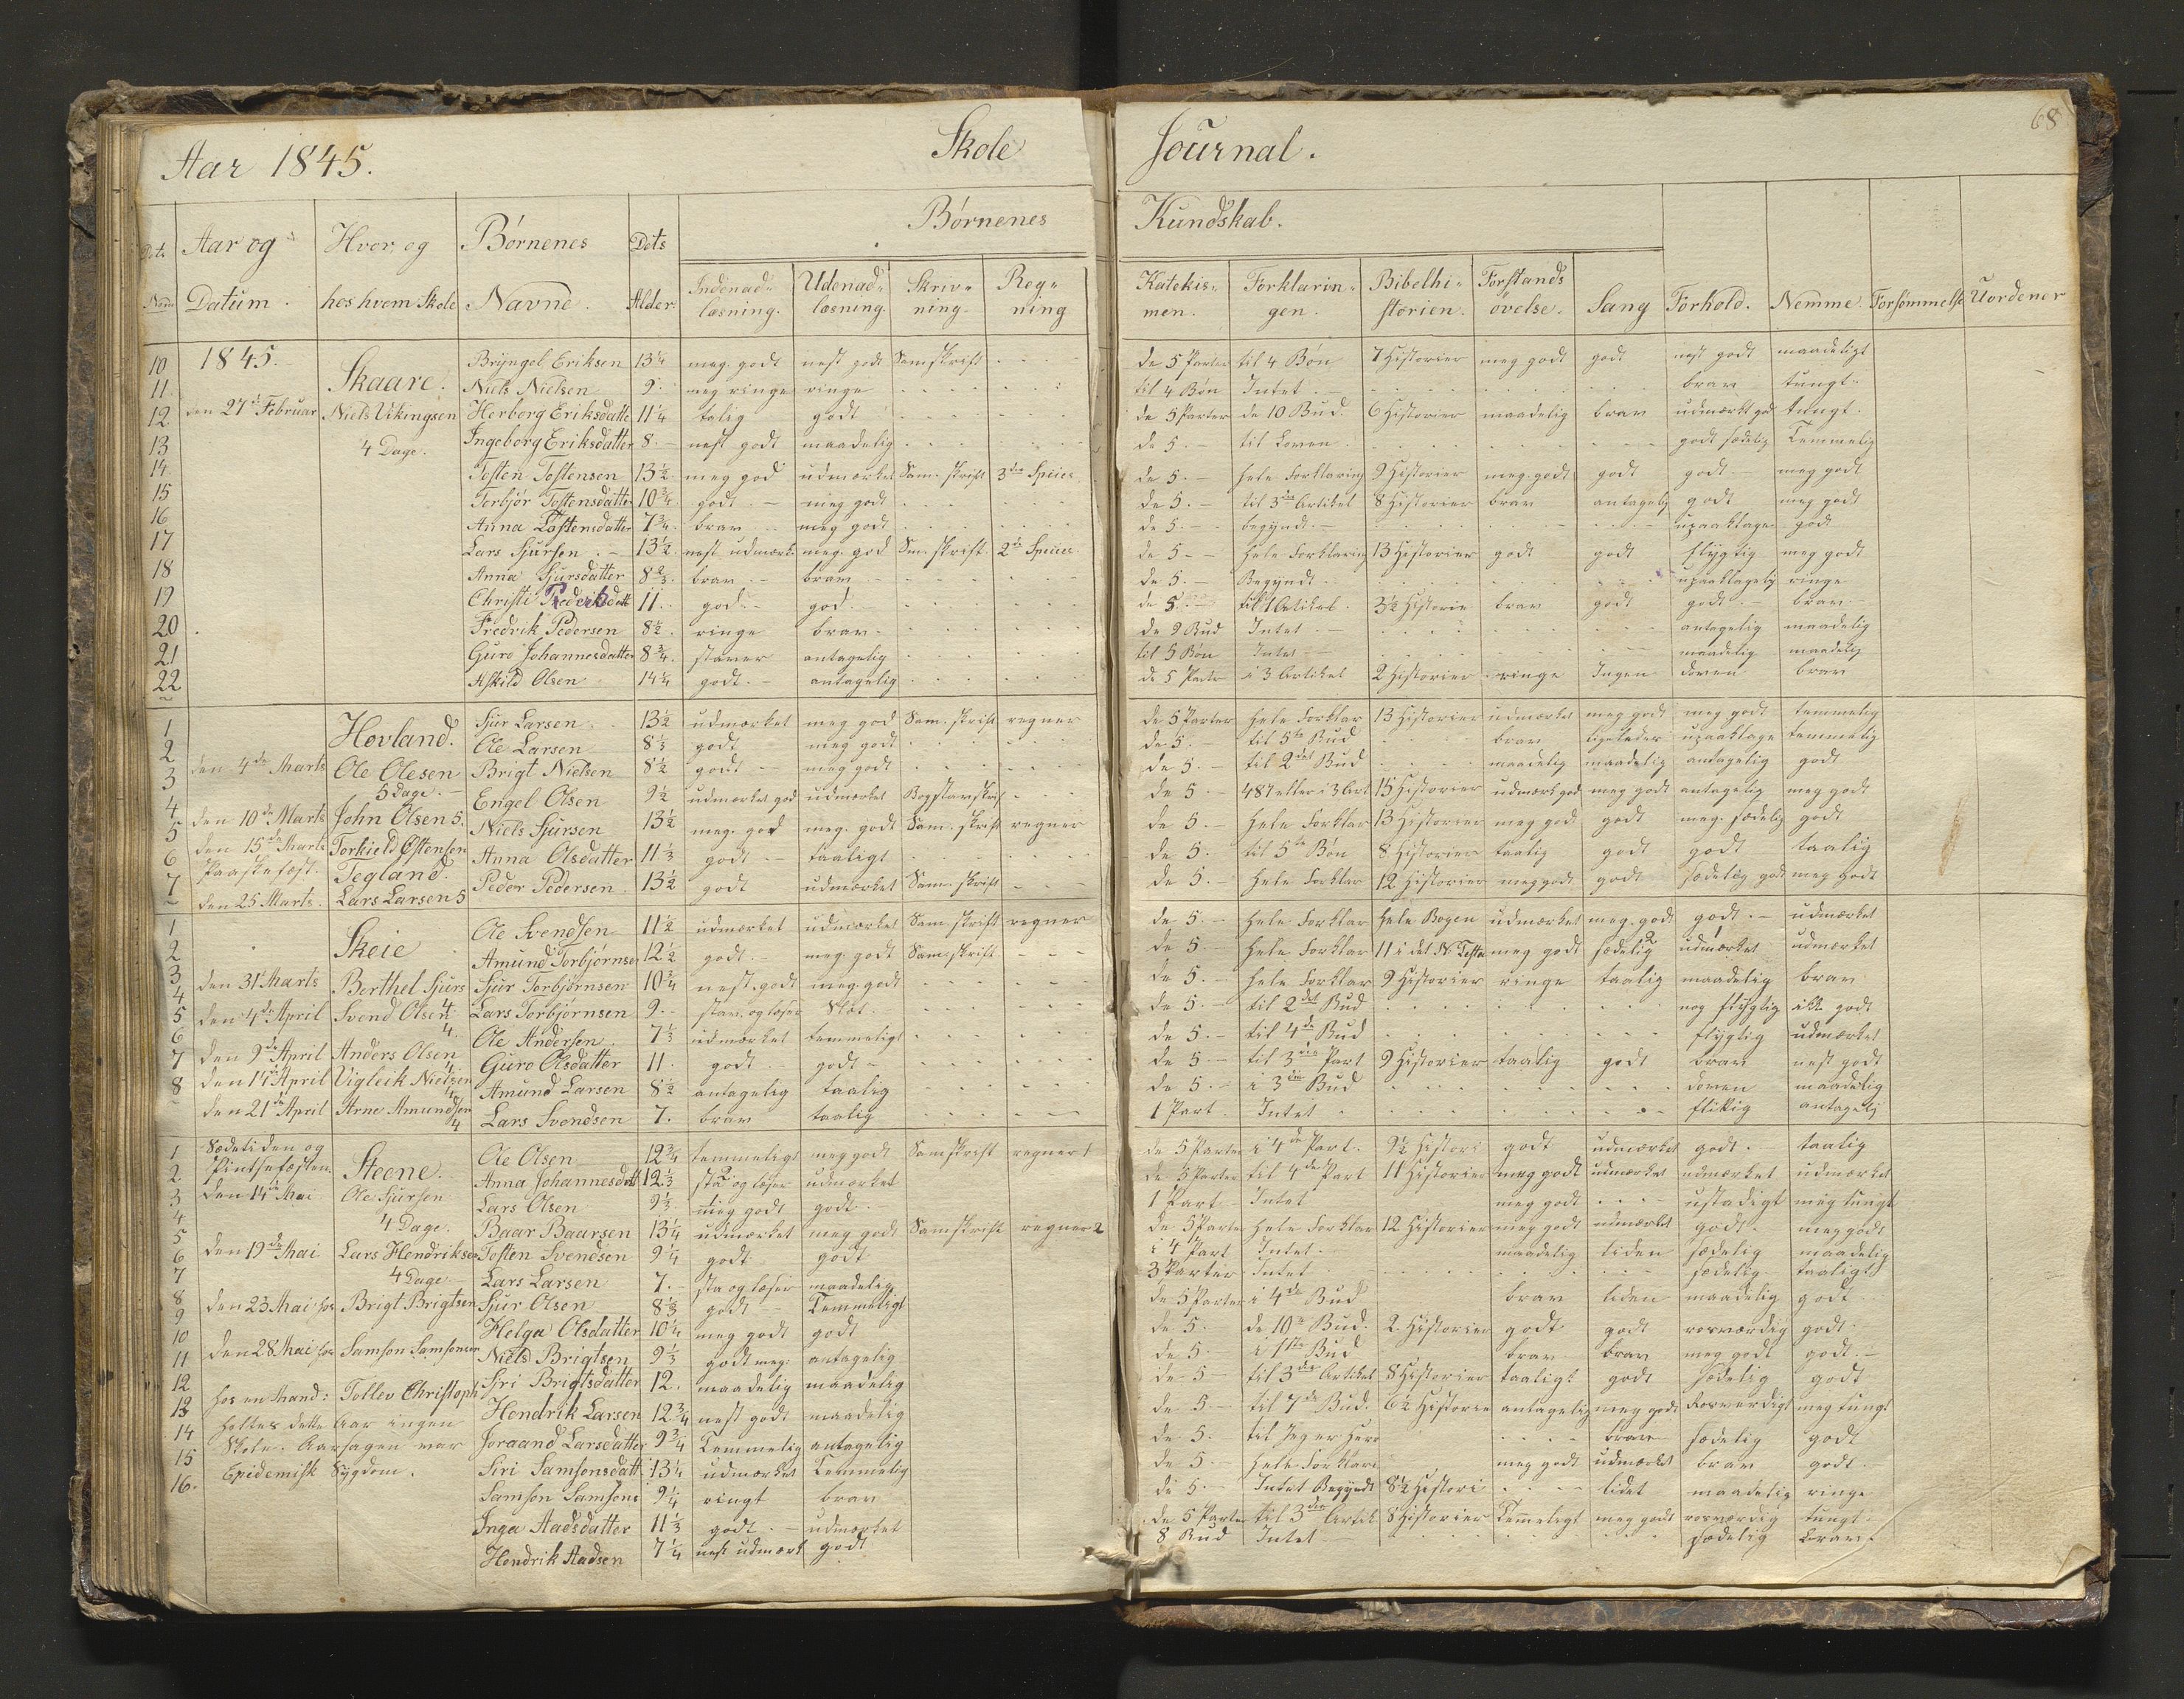 Aar 1845.
Skole
Journal.
68
Børnenes
Kundskab.
Dets Nom
Aar og Datum.
Hvor, og hos hvem Skole
Børnenes Navne.
Dets Alder.
Indenad- læsning.
Udenad- læsning.
Skriv- ning.
Reg- ning
Katekis- men.
Forklarin- gen.
Bibelhi- storien.
Forstands øvelse.
Sang
Forhold.
Nemme
Forsømmelse
Uordener
10 1845. Bryngel Eriksen 13 1/4 meg. godt nest godt Samskrift de 5 Parter til 4 Bøn 7 Historier meg godt godt nest godt maadeligt
11 Skaare. Niels Nielsen 9 meg ringe ringe til 4 Bøn Intet brav tungt
12 den 27de Februar Niels Vikingsen Herborg Eriksdatte 11 1/4 tolig godt de 5 Parter de 10 Bud. 6 Historier maadelig brav udmærkt god tungt.
13 4 Dage. Ingeborg Eriksdatter 8. nest godt maadelig de 5. til Loven godt sædelig Temmelig
14 Tosten Tostensen 13 1/2 meg god udmærket Sam. skrift 3die Species de 5. hele Forklaring 9 Historier meg. godt godt godt meg godt
15 Torbjør Tostensdatter 10 3/4 godt meg godt de 5. til 3die Artikel 8 Historier brav antagelig godt meg godt
16 Anna Tostensdatter 7 3/4 brav meg godt de 5. begyndt. upaaklage god
17 Lars Sjursen 13 1/2 nest udmærk. meg. god Sam. skrift. 2de Species de 5 hele Forklaring 13 Historier godt godt flygtig meg godt
18 Anna Sjursdatter 8 2/3 brav brav de 5. Begyndt upaaklagelig ringe
19 Christi 11. god god de 5. til 1 Artikel. 3 1/2 Historie brav godt godt. brav
20 Fredrik Pedersen 8 1/2 ringe brav de 9 Bud Intet antagelig maadelig
21 Guro Johannesdatter 8 3/4 staver antagelig til 5 Bøn Intet maadelig maadelig
22 Askild Olsen 14 1/4 godt. antagelig de 5 Parter i 3 Artikel 2 Historier ringe Ingen doven brav
1 Hovland. Sjur Larsen 13 1/2 udmærket meg god Sam. skrift regner de 5 Parter hele Forklar 13 Historier udmærket meg godt meg godt temmelig
2 Ole Larsen 8 1/3 godt meg godt de 5. til 5te Bud brav ligeledes upaaklage temmelig
3 den 4de Marts Ole Olesen Brigt Nielsen 8 1/2 godt meg godt de 5. til 2det Bud maadelig maadelig antagelig godt
5 Dage.
4 Engel Olsen 9 1/2 udmærket god udmærket Bogstavskrift de 5 487 eller i 3 Art 15 Historier udmærk god meg godt antagelig meg godt
5 den 10de Marts John Olsen 5. Niels Sjursen 13 1/2 meg. god meg. godt Sam. skrift regner de 5. hele Forklar 13 Historier meg god godt meg. sædelig godt
6 den 15de Marts Torkield Østensen Anna Olsdatter 11 1/3 godt taaligt de 5. til 5te Bøn 8 Historier taalig godt godt taalig
Paaskefest. Tegland.
7 den 25 Marts. Lars Larsen 5 Peder Pedersen. 13 1/2 godt udmærket Sam. skrift de 5. hele Forklar 12 Historier meg godt godt sædelig god meg godt
1 Ole Svendsen 11 1/2 udmærket udmærket Sam. skrift regner de 5. hele Forklar hele Bogen udmærket meg. god godt. udmærket
2 Skeie Amund Torbjørnsen 12 1/2 godt. meg. godt Sam. skrift de 5. hele Forklar 11 i det N. Testa meg godt sædelig udmærket udmærket
3 den 31te Marts Berthel Sjurs 4 Sjur Torbjørnsen 10 3/4 nest. godt meg godt de 5. hele Forklar 9 Historier ringe taalig maadelig brav
4 den 4de April Svend Olsen 4. Lars Torbjørnsen 9. stav. og læser Slet. de 5. til 2det Bud nog flygtig ikke godt
5 Ole Andersen 7 1/3 udmærket temmeligt de 5. til 4de Bud flygtig udmærket
6 den 9de April Anders Olsen 4. Guro Olsdatter 11. godt godt de 5 til 3die Part 9 Historier taalig godt brav nest godt
7 den 14de April Vigleik Nielsen 4 Amund Larsen 8 1/2 antagelig taalig de 5. i 3die Bud doven maadelig
8 den 21de April Arne Amundsen 4 Lars Svendsen 7. brav taalig 1 Part Intet flittig antagelig
1 Sædetiden og Ole Olsen 12 3/4 temmeligt meg godt Samskrift regner 1 de 5 Parter i 4de Part. 9 1/2 Histori godt udmærket godt. taalig
2 Pintsefesten Steene. Anna Johannesdatt 12 1/3 sta og læser udmærket de 5 Parter til 4de Part 11 Historier meg godt udmærket udmærket udmærket
3 den 14de Mai Ole Sjursen Lars Olsen 9 1/3 meg godt godt 1 Part Intet meg godt ustadigt meg tungt
4 4 Dage. Baar Baarsen 13 1/4 udmærket meg godt Samskrift regner 2 de 5 Parter hele Forklar 12 Historier meg godt udmærket godt. meg godt
5 den 19de Mai Lars Hendriksen Tosten Svendsen 9 1/4 godt godt i 4 Part Intet. maadelig liden sædelig maadelig
6 4 Dage Lars Larsen 7. sta og læser maadelig 3 Parter Intet sædelig taaligt
7 den 23 Mai hos Brigt Brigtsen Sjur Olsen 8 1/3 godt Temmeligt de 5 Parter i 4de Bud brav liden maadelig godt
8 Helga Olsdatter 10 1/4 meg godt godt de 5. de 10 Bud. 2 Historier godt godt rosværdig godt.
9 den 28 Mai hos Samson Samsonsen Niels Brigtsen 9 1/3 godt meg: antagelig de 5. i 1ste Bud brav brav meg godt godt.
10 Siri Brigtsdatter 12. maadelig maadelig de 5 til 3die Artikel 8 Historier taaligt godt sædelig godt
11 hos en Mand: Tollev Christoph Hendrik Larsen 12 3/4 nest godt maadelig de 5 til 7de Bud. 6 1/2 Historie antagelig meg godt Rosverdigt meg tungt
12 holtes dette Aar ingen Joraand Larsdatter 9 3/4 Temmelig antagelig de 5. til Jeg er Herr brav sædelig godt
13 Skole. Aarsagen var Siri Samsonsdatt 13 1/4 udmærket Temmelig de 5. hele Forklari meg godt udmærket brav godt.
14 Epidemisk Sygdom. Samson Samsons 9 1/4 ringt brav de 5. Intet Begyndt 8 1/2 Histori lidet maadelig ringe
15 Inga Aadsdatter 11 1/3 godt. udmærket de 5 Parter til 3die Artik 8 Historier Temeligt meg godt rosværdig tungt
16. Hendrik Aadsen 7 1/4 nest udmærk godt 8 Bud Intet sædelig brav.